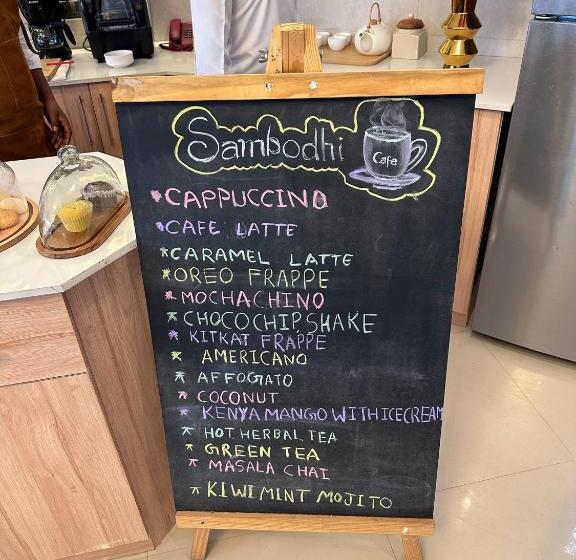 Sambodhi
Cafe
*CAPPUCCINO
*CAFE LATTE
*CARAMEL LATTE
*OREO FRAPPE
*MOCHACHINO
*CHOCOCHIPSHAKE
*KITKAT FRAPPE
* AMERICANO
* AFFOGATO
* COCONUT
* KENYA MANGO WITH ICECREAM
* HOT HERBAL TEA
* GREEN TEA
* MASALA CHAI
* KIWI MINT MOJITO